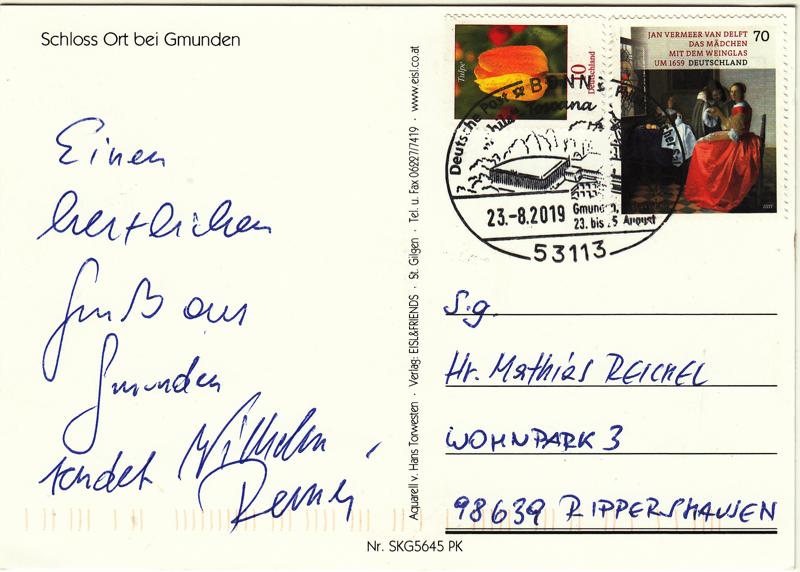 Schloss Ort bei Gmunden
Einen
herzlichen
Gruß aus
Gmunden
sendet Wilhelm
Aquarell v. Hans Torwesten · Verlag: EISL&FRIENDS · St. Gilgen · Tel. u. Fax 06227/7419 · www.eisl.co.at
Tulpe
Deutschland
JAN VERMEER VAN DELFT
DAS MÄDCHEN
MIT DEM WEINGLAS
UM 1659 DEUTSCHLAND
70
Deutsche Post BONN
23.-8.2019
Gmunden,
23. bis 25 August
53113
S.g.
Hr. Mathias REICHEL
WOHNPARK 3
98639 RIPPERSHAUSEN
Nr. SKG5645 PK